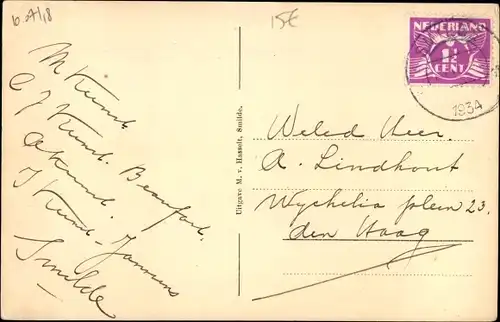 15E
NEDERLAND
1½
CENT
1934
M Kund
C J Kund. Beaufort.
A Kund.
J Kund - Janssens
Smilde
Uitgave M. v. Hasselt, Smilde.
Weled Heer.
A. Lindhout
Wychelia plein 23.
den Haag